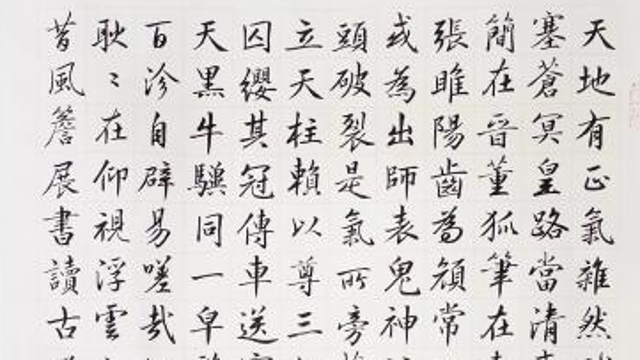 天地有正氣雜然
塞蒼冥皇路當清
簡在晉董狐筆在
張睢陽齒為顏常
或為出師表鬼神
頭破裂是氣所旁
立天柱賴以尊三
囚纓其冠傳車送
天黑牛驥同一皁
百沴自辟易嗟哉
耿〻在仰視浮雲
昔風簷展書讀古